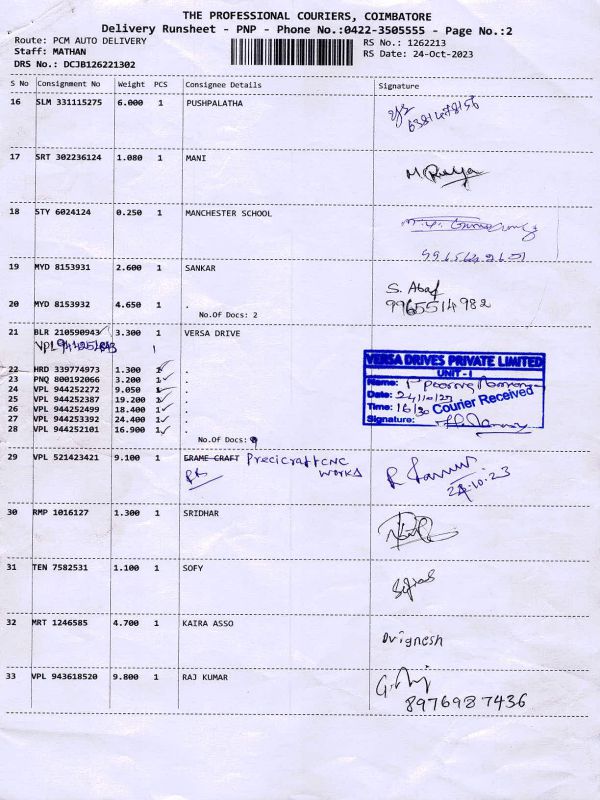 THE PROFESSIONAL COURIERS, COIMBATORE
Delivery Runsheet - PNP - Phone No.:0422-3505555 - Page No.:2
Route: PCM AUTO DELIVERY
RS No.: 1262213
Staff: MATHAN
RS Date: 24-Oct-2023
DRS No.: DCJB126221302
S No Consignment No Weight PCS Consignee Details Signature
16 SLM 331115275 6.000 1 PUSHPALATHA
17 SRT 302236124 1.080 1 MANI
18 STY 6024124 0.250 1 MANCHESTER SCHOOL
19 MYD 8153931 2.600 1 SANKAR
20 MYD 8153932 4.650 1 . 9965514982
No.Of Docs: 2
21 BLR 210590943 3.300 1 VERSA DRIVE
1
22 HRD 339774973 1.300 1 .
23 PNQ 800192066 3.200 1 .
24 VPL 944252272 9.050 1 .
25 VPL 944252387 19.200 1 .
26 VPL 944252499 18.400 1 .
27 VPL 944253392 24.400 1 .
28 VPL 944252101 16.900 1 .
No.Of Docs:
VERSA DRIVES PRIVATE LIMITED
UNIT - I
Name:
Date: 24/10/23
Courier Received
Time: 16/30
Signature:
29 VPL 521423421 9.100 1 FRAME CRAFT Precicraft CNC
WORKS
24.10.23
30 RMP 1016127 1.300 1 SRIDHAR
31 TEN 7582531 1.100 1 SOFY
32 MRT 1246585 4.700 1 KAIRA ASSO Vignesh
33 VPL 943618520 9.800 1 RAJ KUMAR
8976987436